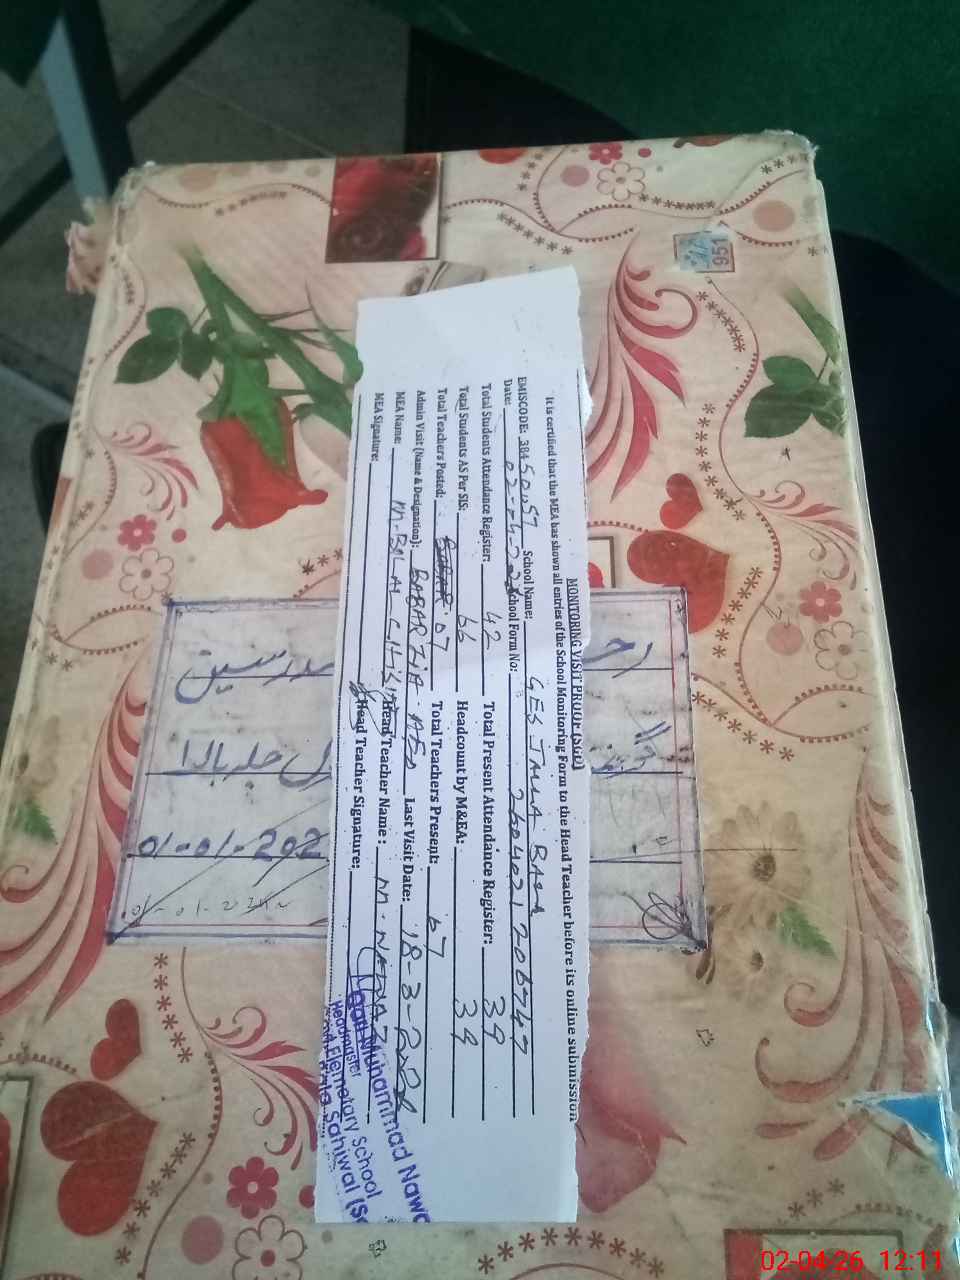 MONITORING VISIT PROOF (SGE)
It is certified that the MEA has shown all entries of the School Monitoring Form to the Head Teacher before its online submission
EMISCODE: 38450157 School Name: GES JALLA BALA
Date: 02-04-202 School Form No: 2604021206747
Total Students Attendance Register: 42 Total Present Attendance Register: 39
Total Students AS Per SIS: 66 Headcount by M&EA: 39
Total Teachers Posted: 07 Total Teachers Present: 07
Admin Visit (Name & Designation): BABAR ZIA. AEO Last Visit Date: 18-3-202
MEA Name: M. BILAL Head Teacher Name: M. NAWAZ
MEA Signature: Head Teacher Signature:
Muhammad Nawa
Headmaster
Elemetary School
Sahiwal (S
مدرسین
01-01-202
951
02-04-26 12:11